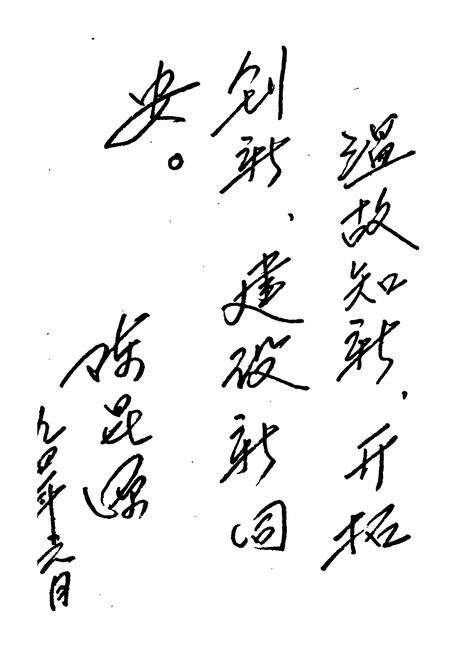 温故知新，开拓
创新、建设新同
安。
陈昆源
九〇年元月